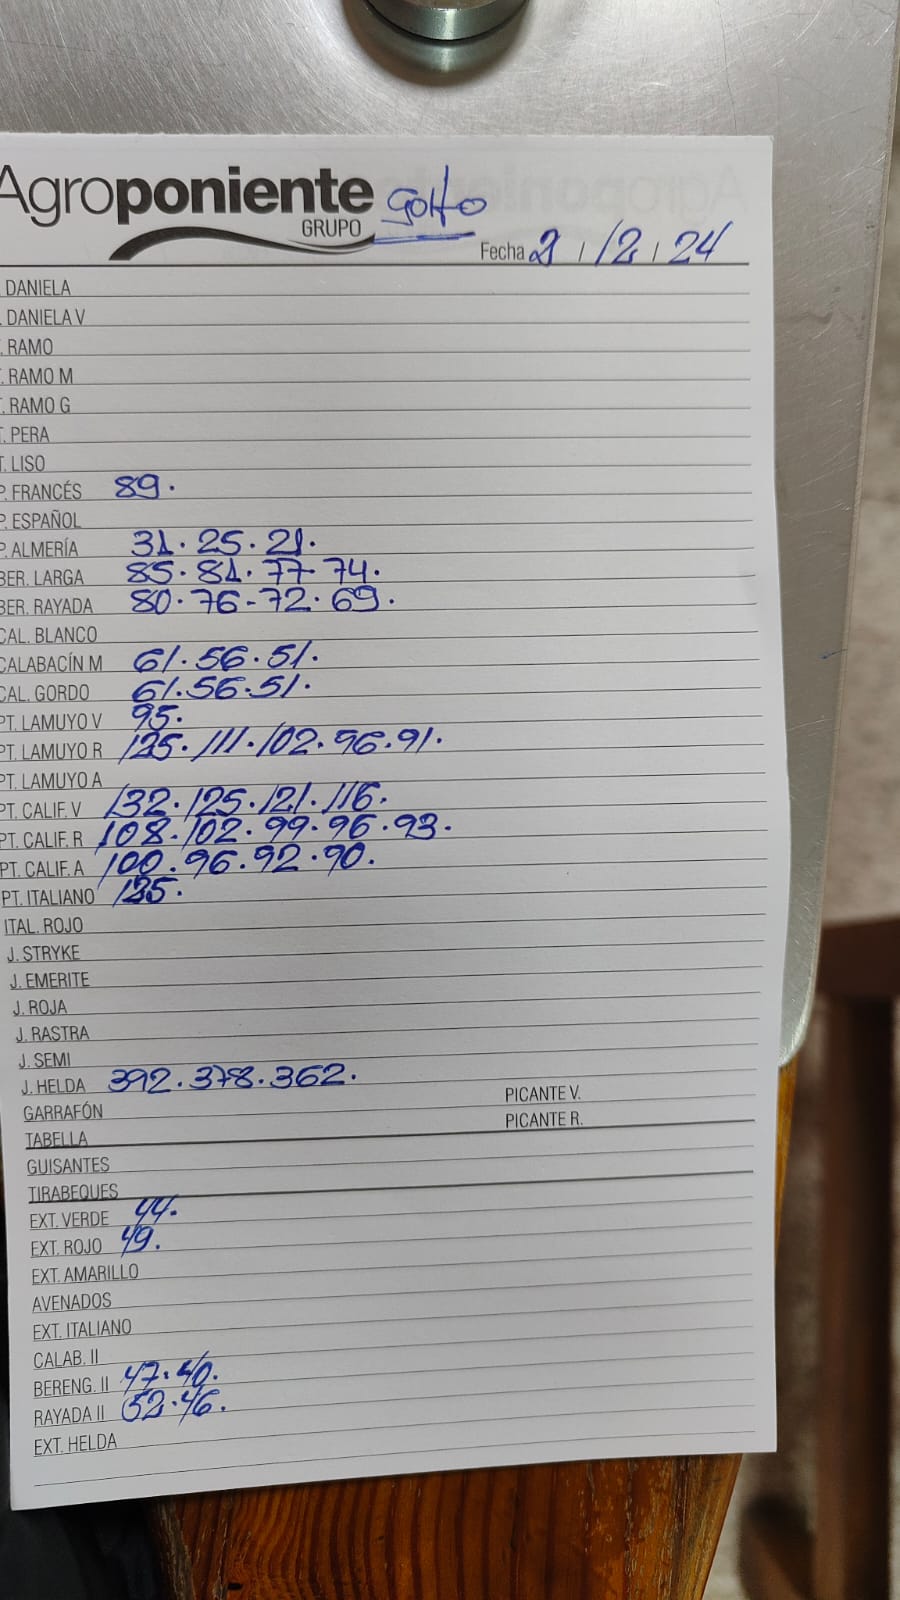 Agroponiente
GRUPO
golfo
Fecha 2 / 12 / 24
. DANIELA
. DANIELA V
. RAMO
T. RAMO M
T. RAMO G
T. PERA
T. LISO
P. FRANCÉS 89.
P. ESPAÑOL
P. ALMERÍA 31. 25. 21.
BER. LARGA 85. 81. 77- 74.
BER. RAYADA 80. 76- 72. 69.
CAL. BLANCO
CALABACÍN M 61. 56. 51.
CAL. GORDO 61. 56. 51.
PT. LAMUYO V 95.
PT. LAMUYO R 125. 111. 102. 96. 91.
PT. LAMUYO A
PT. CALIF. V 132. 125. 121. 116.
PT. CALIF. R 108. 102. 99. 96. 93.
PT. CALIF. A 100. 96. 92. 90.
PT. ITALIANO
ITAL. ROJO
J. STRYKE
J. EMERITE
J. ROJA
J. RASTRA
J. SEMI
J. HELDA 392. 378. 362.
GARRAFÓN PICANTE V.
TABELLA PICANTE R.
GUISANTES
TIRABEQUES
EXT. VERDE 44.
EXT. ROJO 49.
EXT. AMARILLO
AVENADOS
EXT. ITALIANO
CALAB. II
BERENG. II 47. 40.
RAYADA II 52. 46.
EXT. HELDA